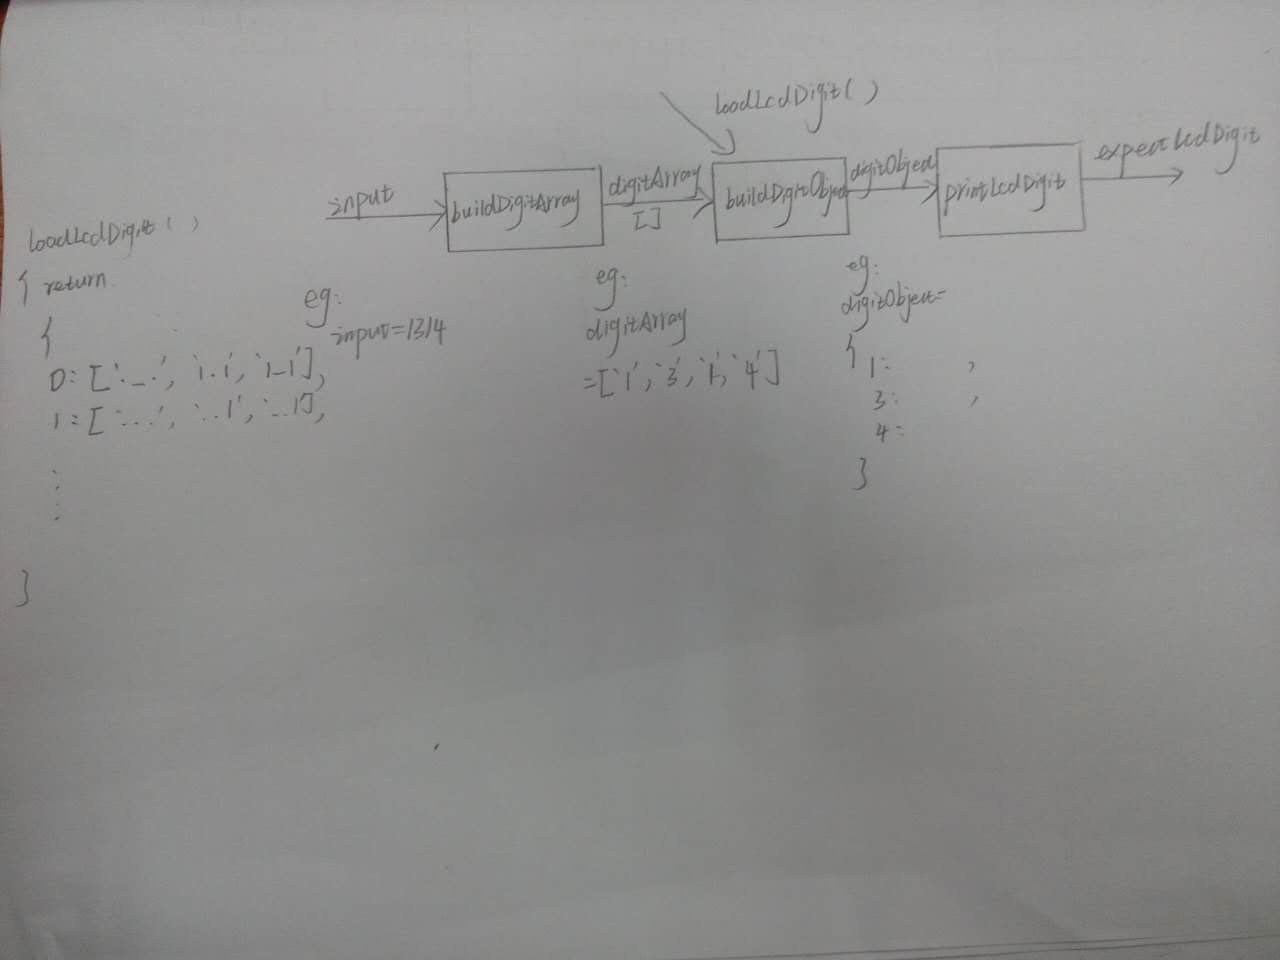 loadLcdDigit( )
expectLcdDigit
input
buildDigitArray
digitArray
[ ]
buildDigitObject
digitObject
printLcdDigit
loadLcdDigit( )
{ return
{
0: ['._.', '|.|', '|_|'],
1: ['...', '..|', '..|'],
}
eg:
input=1314
eg:
digitArray
=['1','3','1','4']
eg:
digitObject=
{
1: ,
3: ,
4:
}